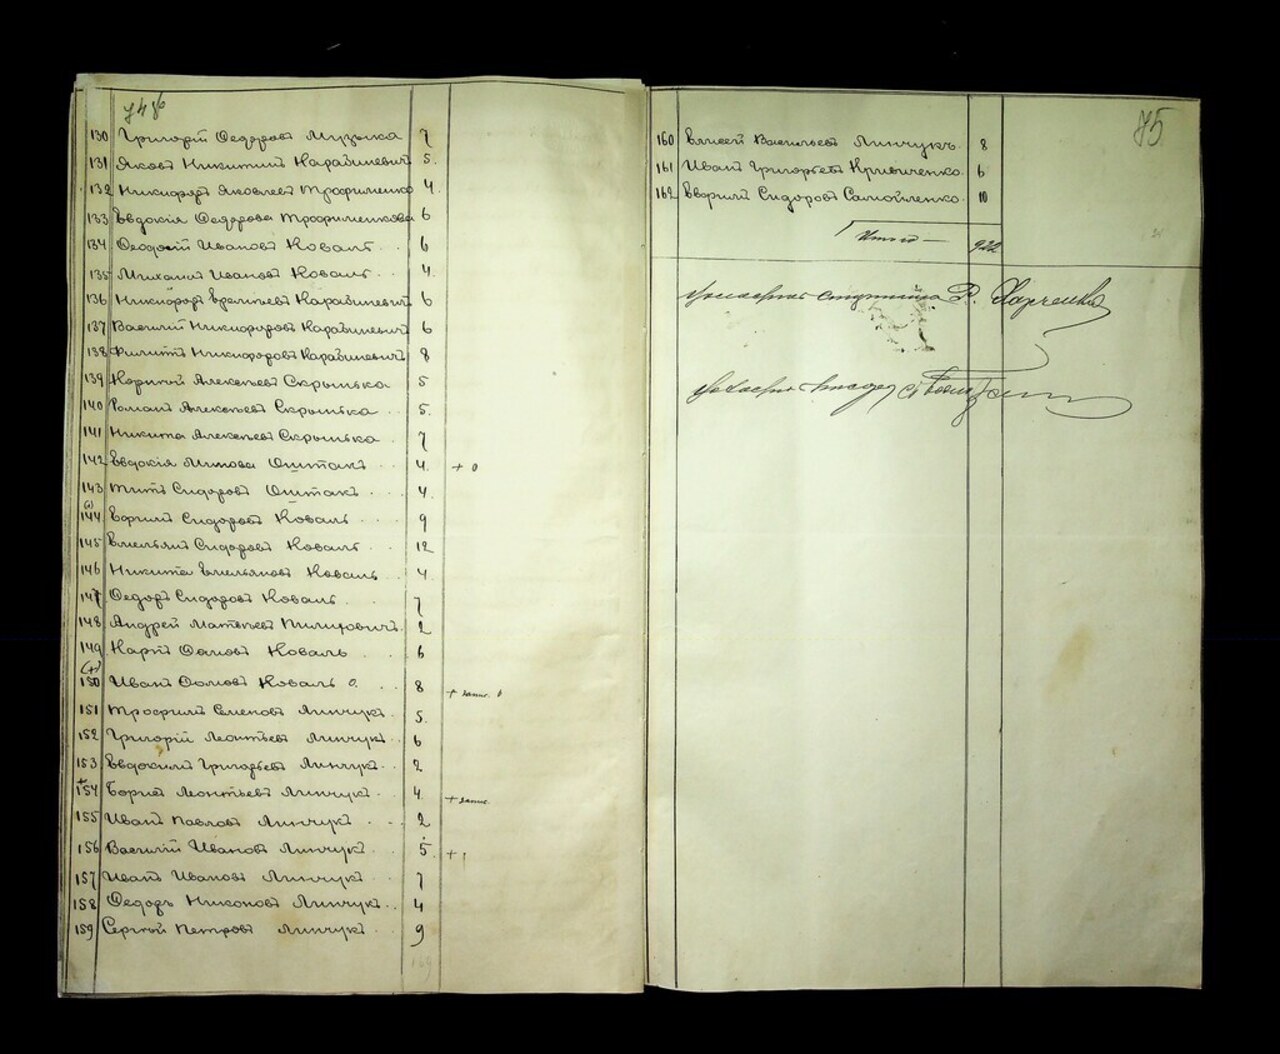 74 об
130 Григорій Федоровъ Музыка 7
131 Яковъ Никитинъ Карабиневичъ 5.
132 Никифоръ Яковлевъ Трофименко 4.
133 Евдокія Федорова Трофименкова 6
134 Феодосій Ивановъ Коваль 6
135 Михаилъ Ивановъ Коваль 4.
136 Никифоръ Карабиневичъ 6
137 Василій Никифоровъ Карабиневичъ 6
138 Филиппъ Никифоровъ Карабиневичъ 8
139 Корній Алексѣевъ Скрынька 5
140 Романъ Алексѣевъ Скрынька 5.
141 Никита Алексѣевъ Скрынька 7
142 Евдокія Оштакъ 4. + 0
143 Титъ Сидоровъ Оштакъ 4.
144 Ефимъ Сидоровъ Коваль 9
145 Емельянъ Сидоровъ Коваль 12
146 Никита Емельяновъ Коваль 4.
147 Федоръ Сидоровъ Коваль 7
148 Андрей Матвѣевъ Пилиповичъ 2
149 Карпъ Фомовъ Коваль 6
(+)
150 Иванъ Фомовъ Коваль 0. 8 +
151 Трофимъ Семеновъ Линчукъ 5.
152 Григорій Леонтьевъ Линчукъ 6
153 Евдокимъ Григорьевъ Линчукъ 2
+
154 Борисъ Леонтьевъ Линчукъ 4. +
155 Иванъ Павловъ Линчукъ 2
156 Василій Ивановъ Линчукъ 5 +
157 Иванъ Ивановъ Линчукъ 7
158 Федоръ Никоновъ Линчукъ 4
159 Сергій Петровъ Линчукъ 9
169
75
160 Елисей Васильевъ Линчукъ 8
161 Иванъ Григорьевъ Кривиченко 6
162 Ефримъ Сидоровъ Самойленко 10
Итого — 922
старшина Харченко